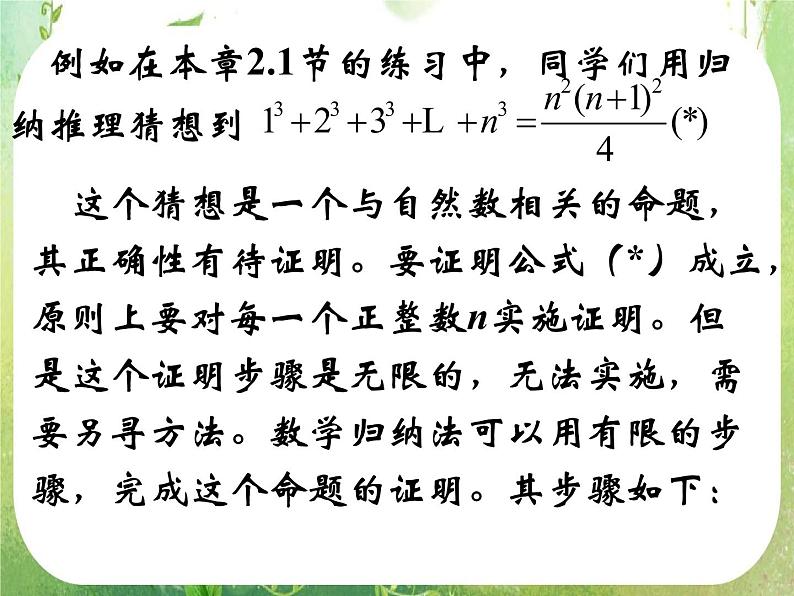 例如在本章2.1节的练习中，同学们用归
纳推理猜想到 1³+2³+3³+L +n³=n²(n+1)²/4(*)
这个猜想是一个与自然数相关的命题，
其正确性有待证明。要证明公式（*）成立，
原则上要对每一个正整数n实施证明。但
是这个证明步骤是无限的，无法实施，需
要另寻方法。数学归纳法可以用有限的步
骤，完成这个命题的证明。其步骤如下：